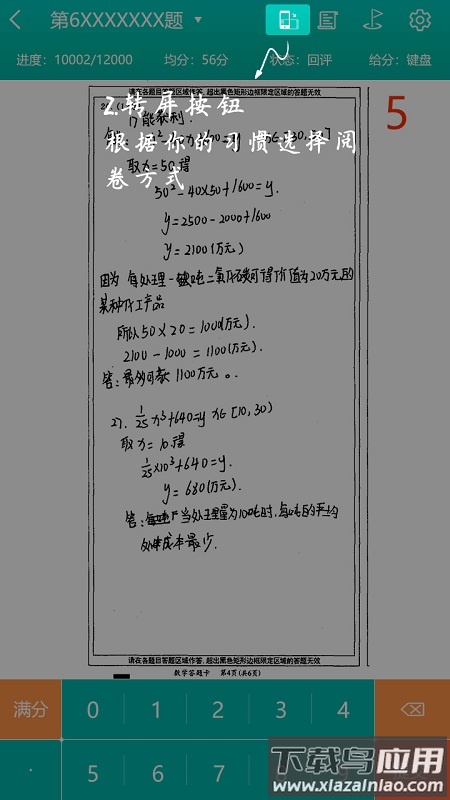 第6XXXXXXX题
进度：10002/12000 均分：56分 状态：回评 给分：键盘
请在各题目答题区域作答，超出黑色矩形边框限定区域的答题无效
2.转屏按钮
根据你的习惯选择阅
卷方式
5
取x=50得
50²-40×50+1600=y.
y=2500-2000+1600
y=2100(万元)
因为 每处理一吨二氧化碳可得价值为20万元的
某种化工产品
所以50×20=1000(万元).
2100-1000=1100(万元).
答：最多可获1100万元。
27. 1/25 x³+640=y x∈[10,30)
取x=10得
1/25×10³+640=y.
y=680(万元).
答： 当处理量为100吨时，每吨的平均
处理成本最少.
请在各题目答题区域作答，超出黑色矩形边框限定区域的答题无效
数学答题卡 第4页(共6页)
满分 0 1 2 3 4
· 5 6 7
下载鸟应用
www.xiazainiao.com